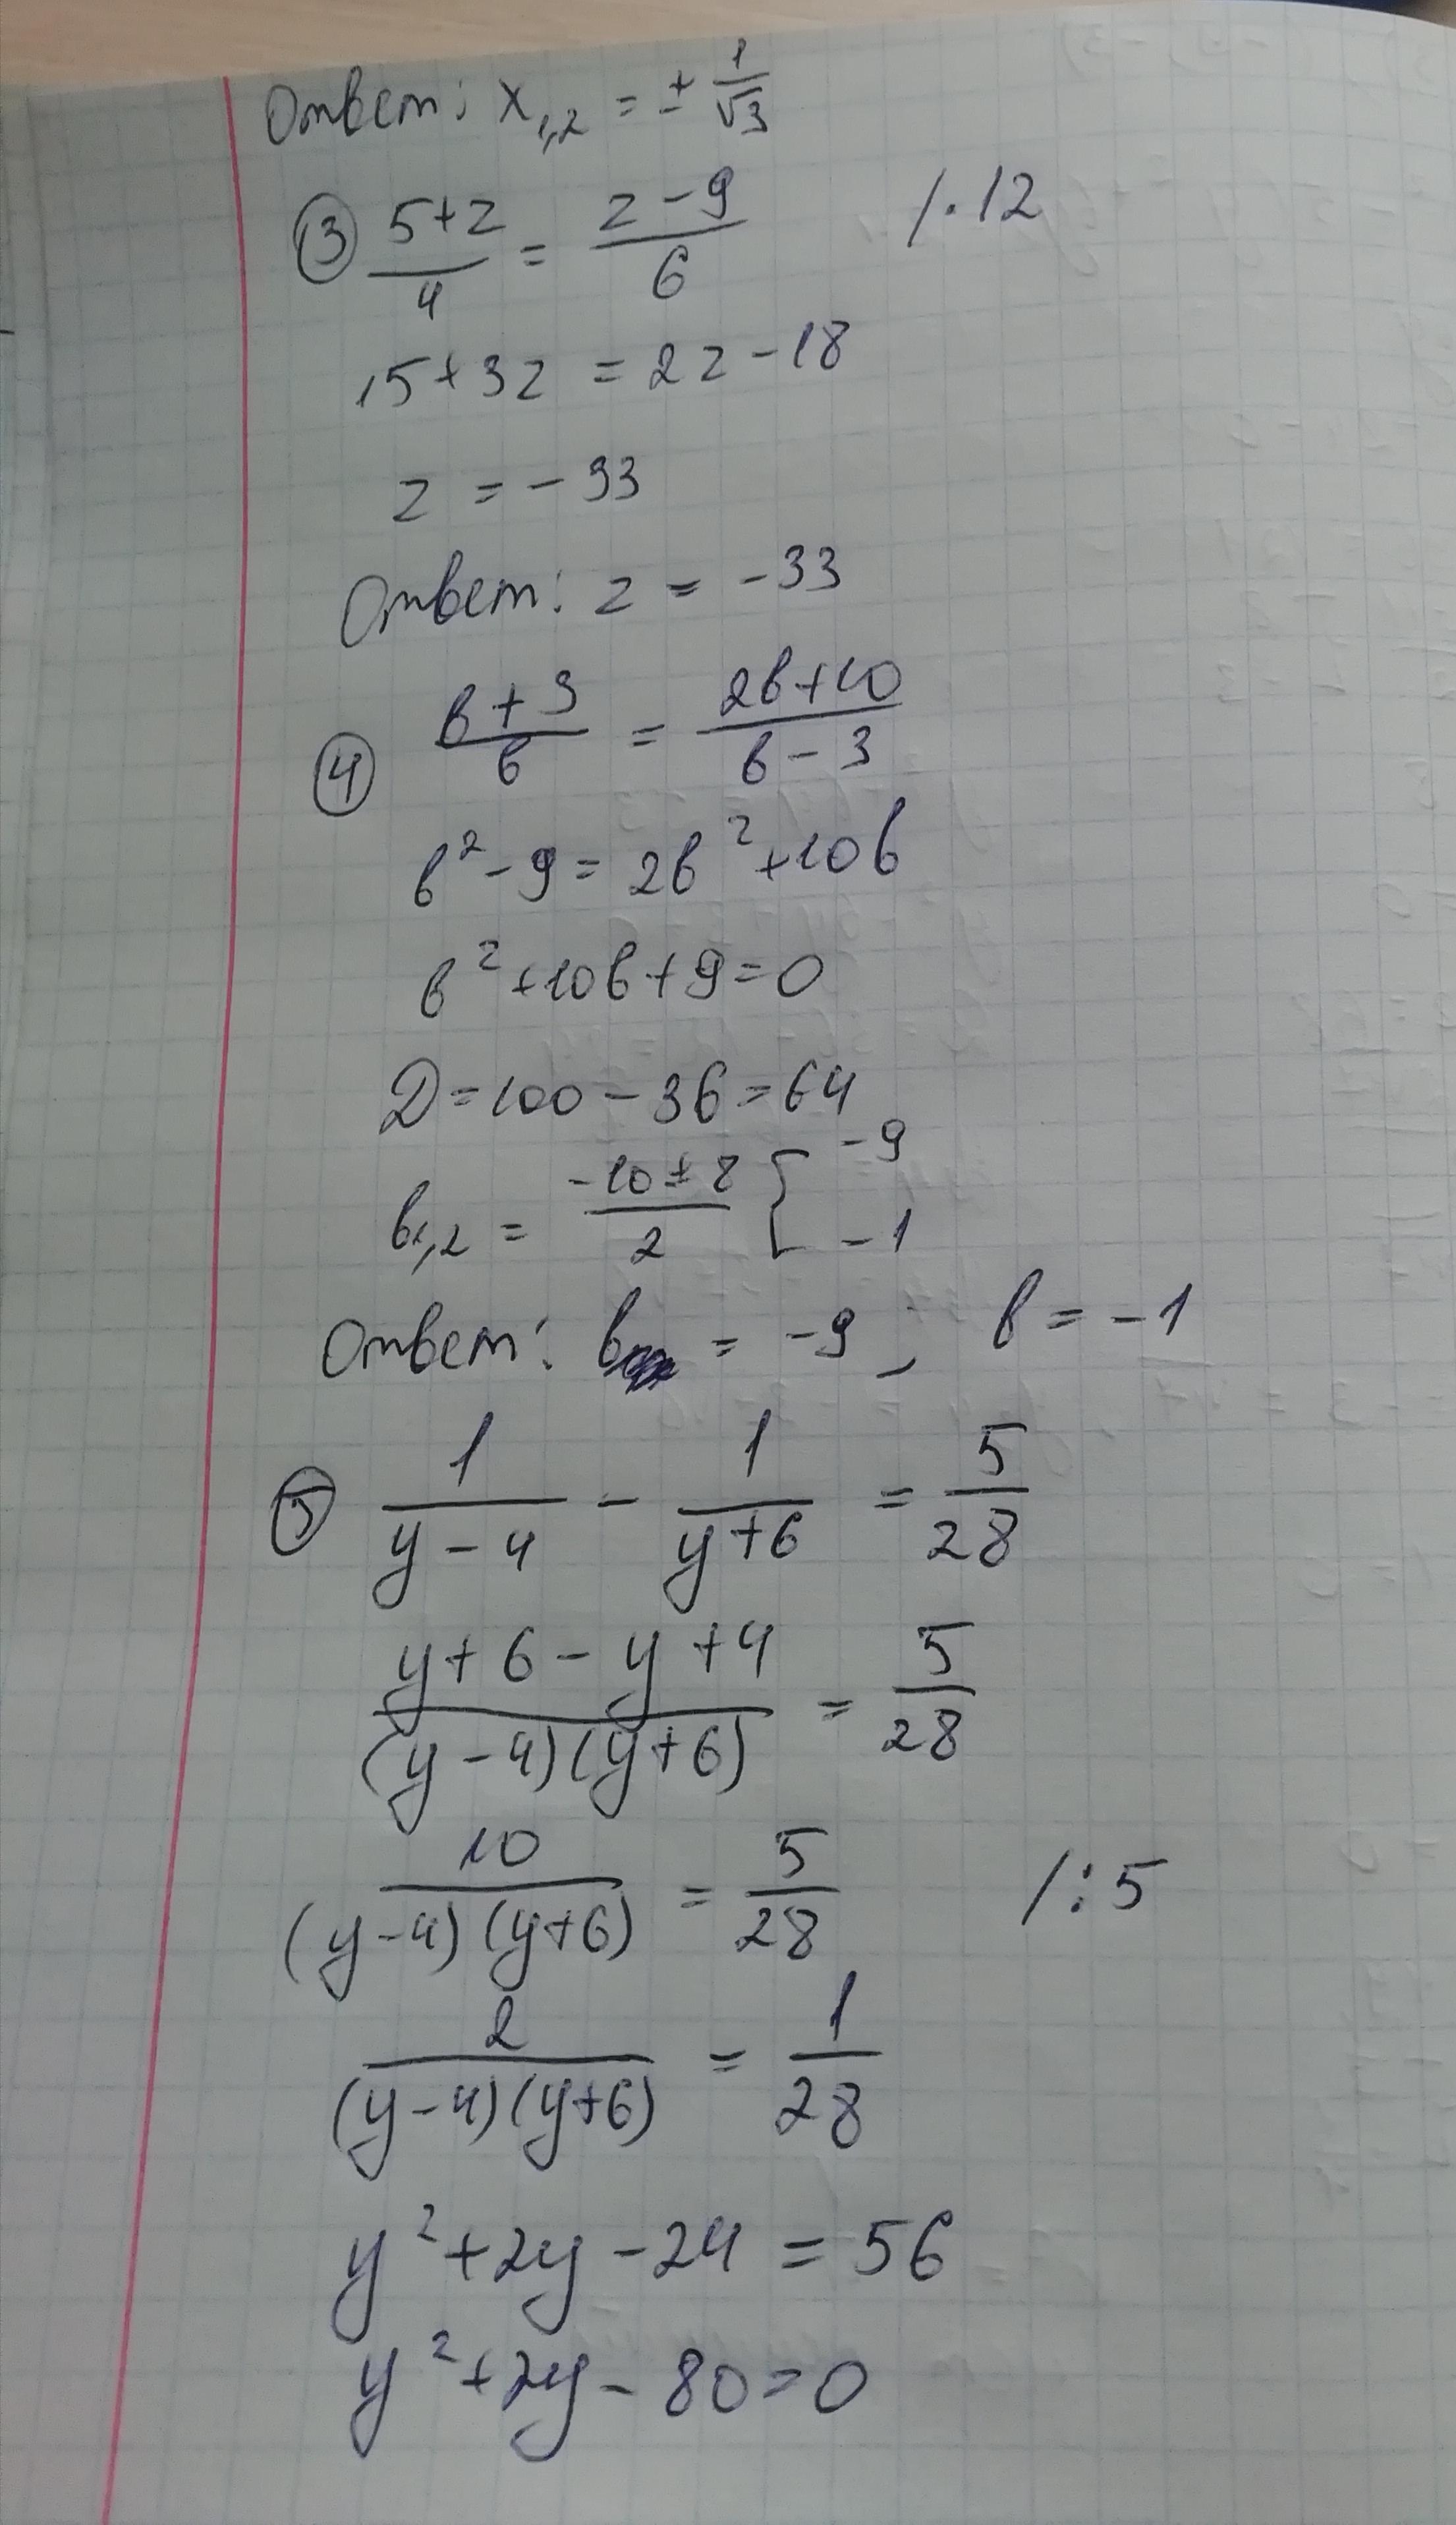 Ответ: x₁,₂ = ± 1/√3
③ (5+z)/4 = (z-9)/6 /·12
15+3z = 2z-18
z = -33
Ответ: z = -33
④ (b+3)/b = (2b+10)/(b-3)
b²-9 = 2b²+10b
b²+10b+9=0
D=100-36=64
b₁,₂ = (-10±8)/2 [ -9 -1
Ответ: b = -9; b = -1
⑤ 1/(y-4) - 1/(y+6) = 5/28
(y+6-y+4)/((y-4)(y+6)) = 5/28
10/((y-4)(y+6)) = 5/28 /:5
2/((y-4)(y+6)) = 1/28
y²+2y-24 = 56
y²+2y-80=0